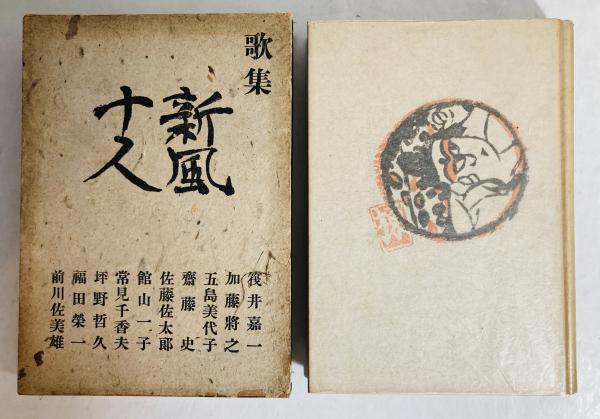 歌集
新風
十人
筏井嘉一
加藤將之
五島美代子
齋藤史
佐藤佐太郎
館山一子
常見千香夫
坪野哲久
福田榮一
前川佐美雄